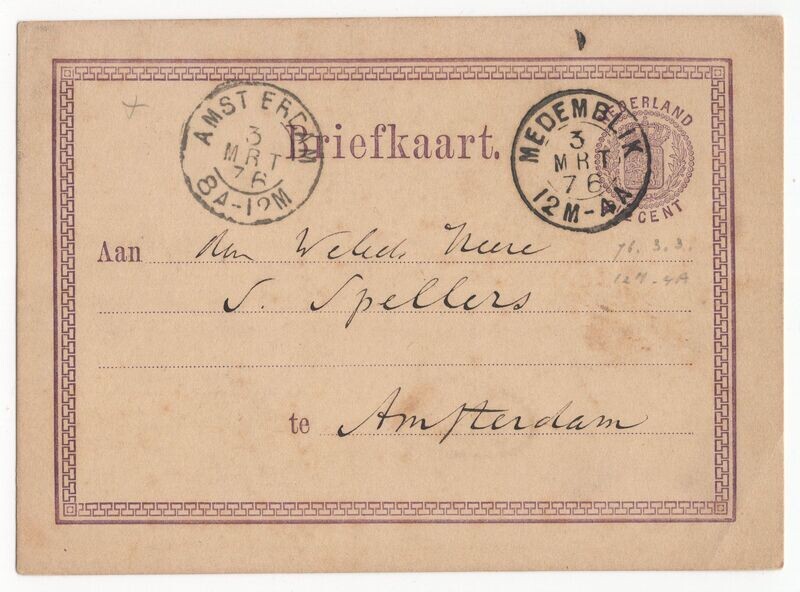 AMSTERDAM
3
MRT
76
8A-12M
Briefkaart.
MEDEMBLIK
3
MRT
76
12M-4A
NEDERLAND
CENT
Aan den Heere
76. 3. 3.
S. Spellers
12M-4A
te Amsterdam